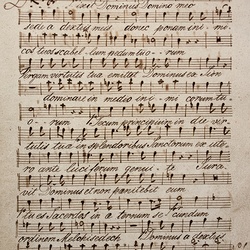 Dixit Dominus Domino meo
sede a dextris meis donec ponam ini mi
cos tuos scabel lum pedum tuo rum
Virgam virtutis tuae emittet Dominus ex Sion
dominare in medio inimi corum tu
o rum Tecum principium in die vir
tutis tuae in splendoribus Sanctorum ex ute
ro ante luciferum genui te Jura
vit Dominus et non penitebit eum
tu es Sacerdos in aeternum se cundum
ordinem Melchisedech Dominus a dextris